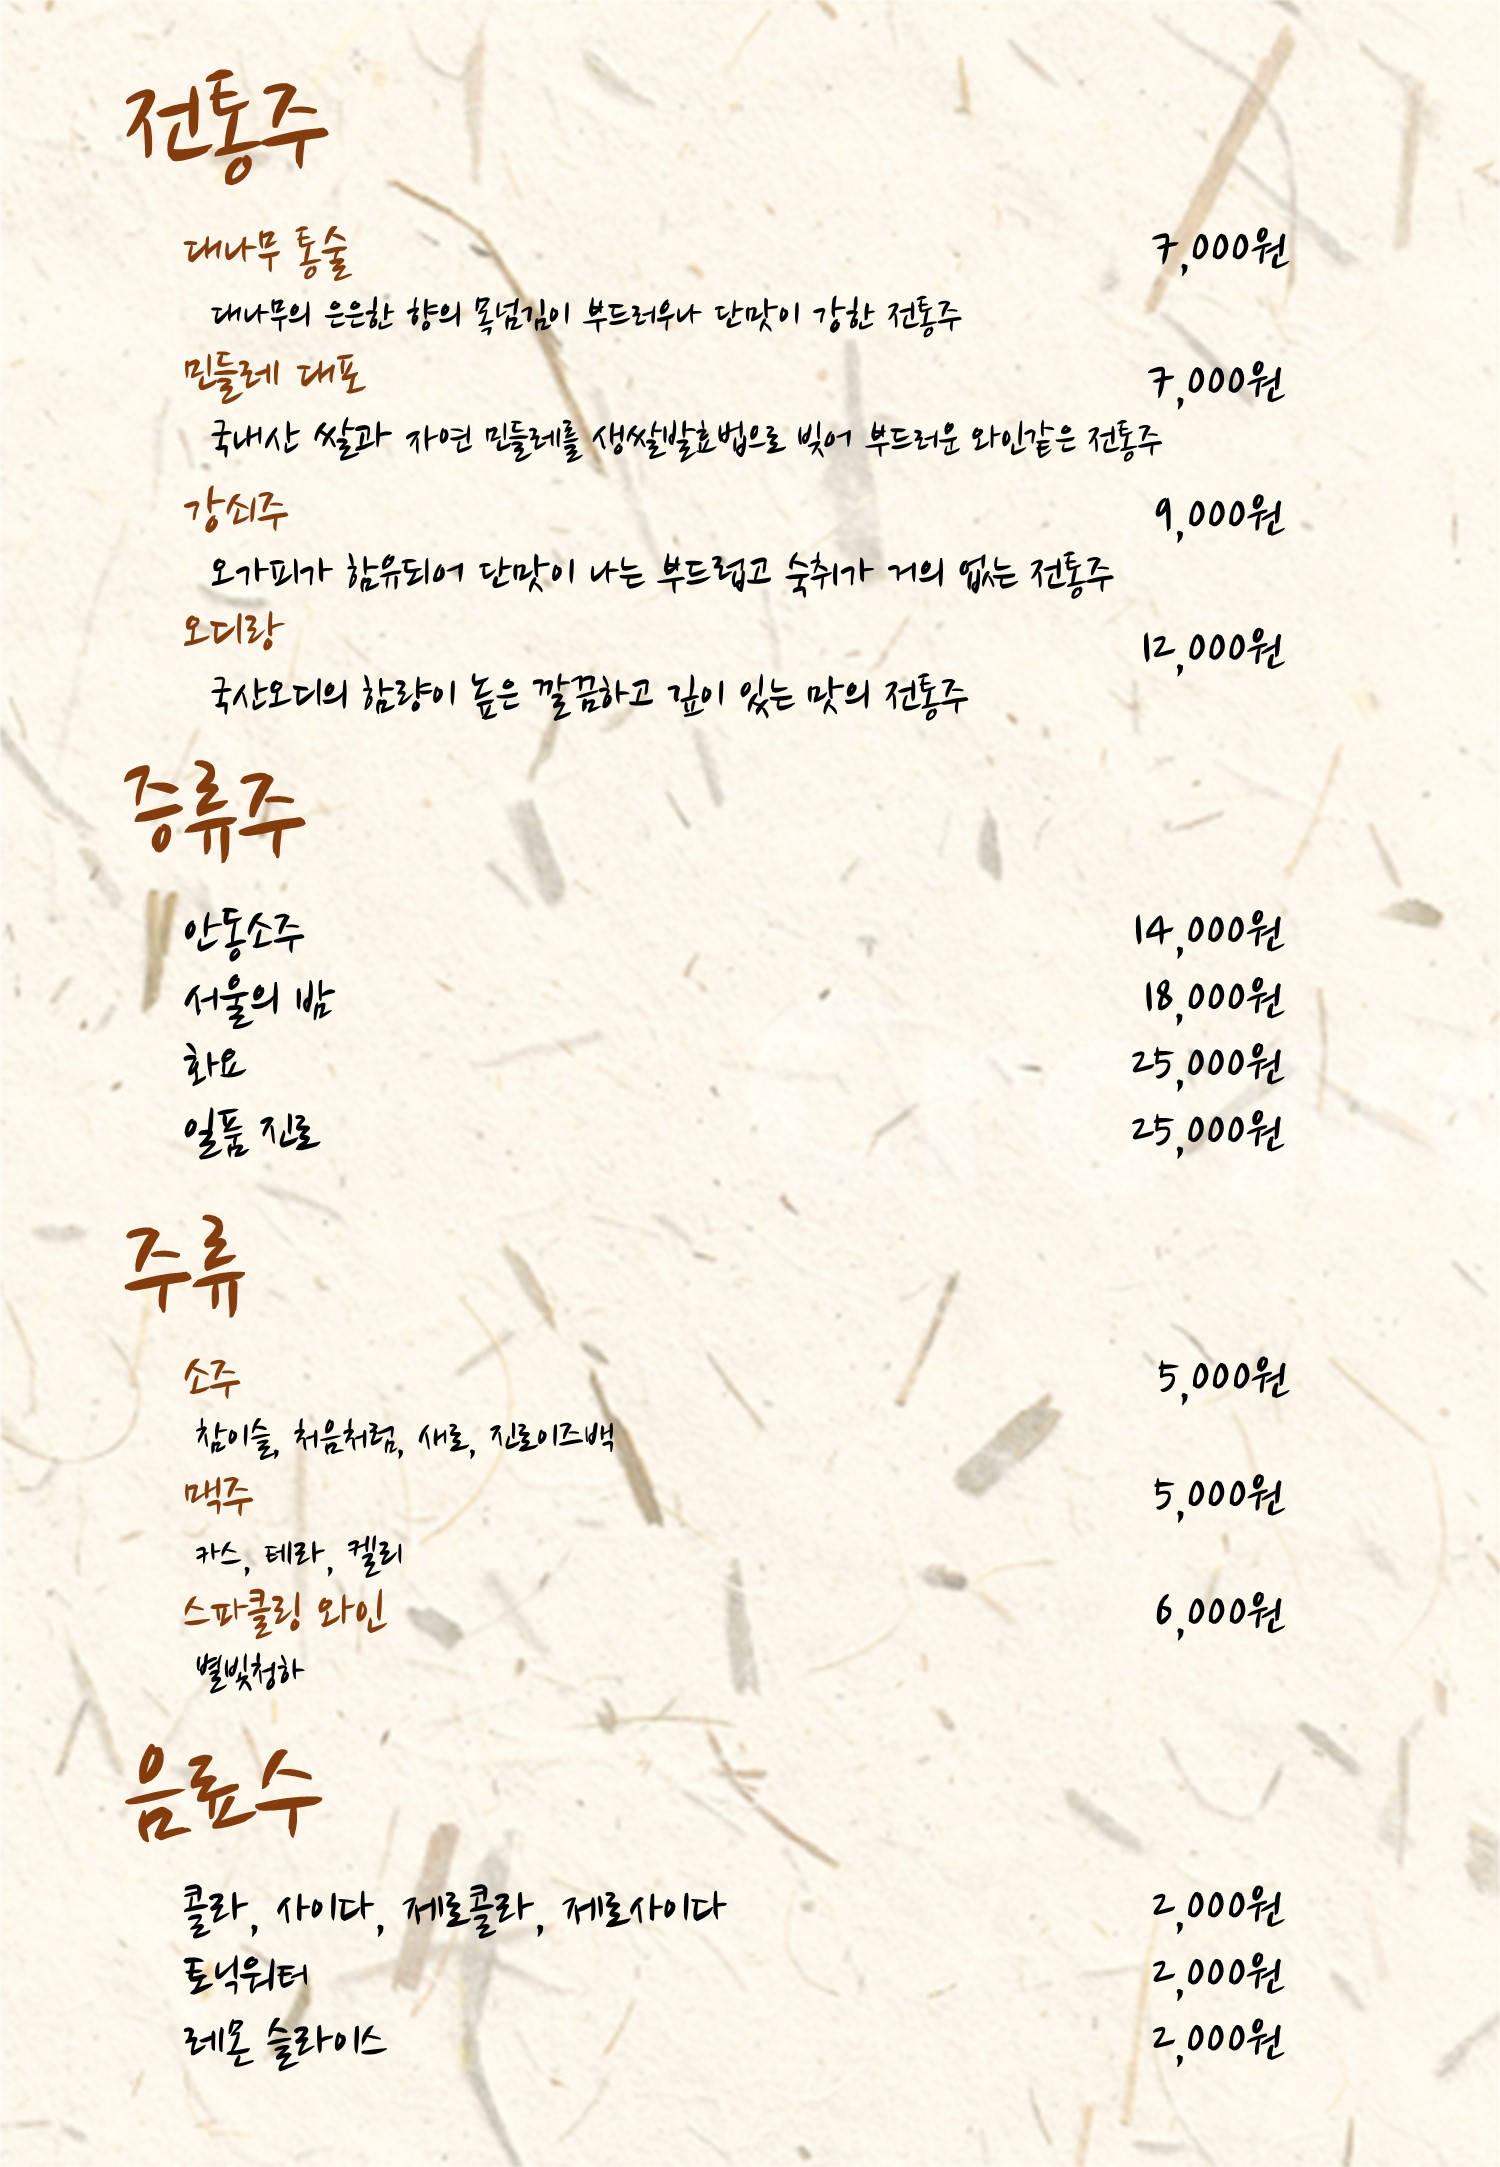 전통주
대나무 통술 7,000원
대나무의 은은한 향의 목넘김이 부드러우나 단맛이 강한 전통주
민들레 대포 7,000원
국내산 쌀과 자연 민들레를 생쌀발효법으로 빚어 부드러운 와인같은 전통주
강쇠주 9,000원
오가피가 함유되어 단맛이 나는 부드럽고 숙취가 거의 없는 전통주
오디랑 12,000원
국산오디의 함량이 높은 깔끔하고 깊이 있는 맛의 전통주
증류주
안동소주 14,000원
서울의 밤 18,000원
화요 25,000원
일품 진로 25,000원
주류
소주 5,000원
참이슬, 처음처럼, 새로, 진로이즈백
맥주 5,000원
카스, 테라, 켈리
스파클링 와인 6,000원
별빛청하
음료수
콜라, 사이다, 제로콜라, 제로사이다 2,000원
토닉워터 2,000원
레몬 슬라이스 2,000원